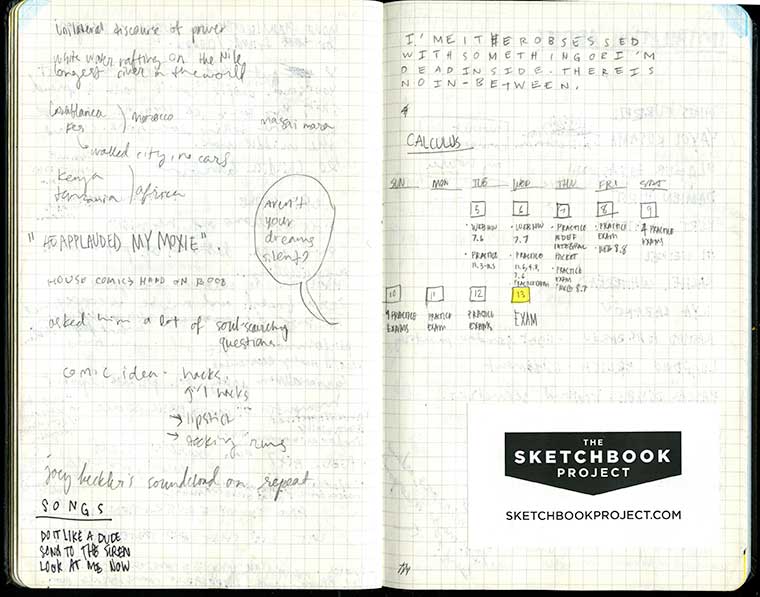 unilateral discourse of power
white water rafting on the Nile,
longest river in the world
Casablanca
Fes
morocco
masai mara
walled city, no cars
Kenya
tanzania
africa
Aren't
your
dreams
silent?
"HE APPLAUDED MY MOXIE".
HOUSE COMICS HAND ON BOOB
asked him a lot of soul-searching
questions.
comic idea - hacks.
girl hacks
→ lipstick
→ runs
joey heckler's soundcloud on repeat.
SONGS
DO IT LIKE A DUDE
SONG TO THE SIREN
LOOK AT ME NOW
I'M EITHER OBSESSED
WITH SOMETHING OR I'M
DEAD INSIDE. THERE IS
NO IN-BETWEEN.
CALCULUS
SUN MON TUE WED THU FRI SAT
5 6 7 8 9
· WEBHW 7.6
· PRACTICE
· WEBHW 7.7
· PRACTICE
7.6
· PRACTICE
INTEGRAL
PACKET
· PRACTICE EXAM
8.7
· PRACTICE EXAM
8.8
4 PRACTICE EXAM
10 11 12 13
4 PRACTICE EXAMS
PRACTICE EXAM
PRACTICE EXAMS
EXAM
THE
SKETCHBOOK
PROJECT
SKETCHBOOKPROJECT.COM